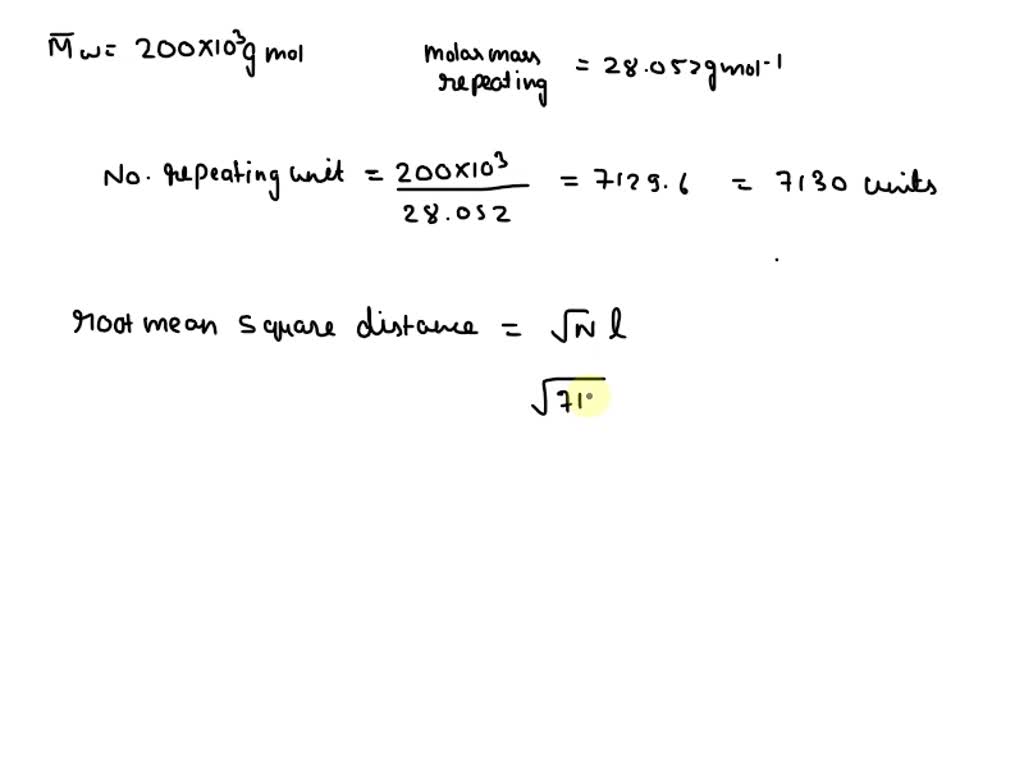 M̅w = 200×10³g mol
Molar mass repeating = 28.052gmol⁻¹
No. repeating unit = 200×10³ / 28.052 = 7129.6 = 7130 units
root mean square distance = √N l
√71